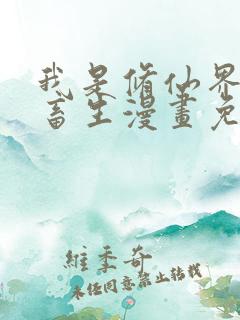 我是修仙界
畜生漫畫免
維季奇
未经同意禁止转载